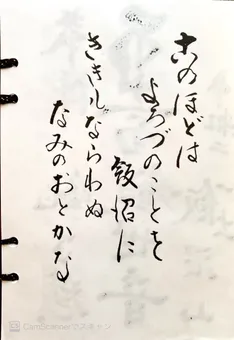 このほどは
よろづのことを
飯沼に
きき〳〵ならわぬ
なみのおとかな
CamScannerでスキャン